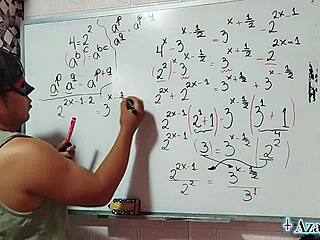 4 = 2²
(a^b)^c = a^bc
a^p / a^q = a^p-q
a^p a^q = a^p+q
2^2x-1-2 = 3^x-½
4^x - 3^x-½ = 3^x+½ - 2^2x-1
(2²)^x - 3^x-½ = 3^x+½ - 2^2x-1
2^2x + 2^2x-1 = 3^x+½ + 3^x-½
2^2x-1 (2+1) = 3^x-½ (3+1)
2^2x-1 (3) = 3^x-½ (2²)
2^2x-1 / 2² = 3^x-½ / 3¹
Aza